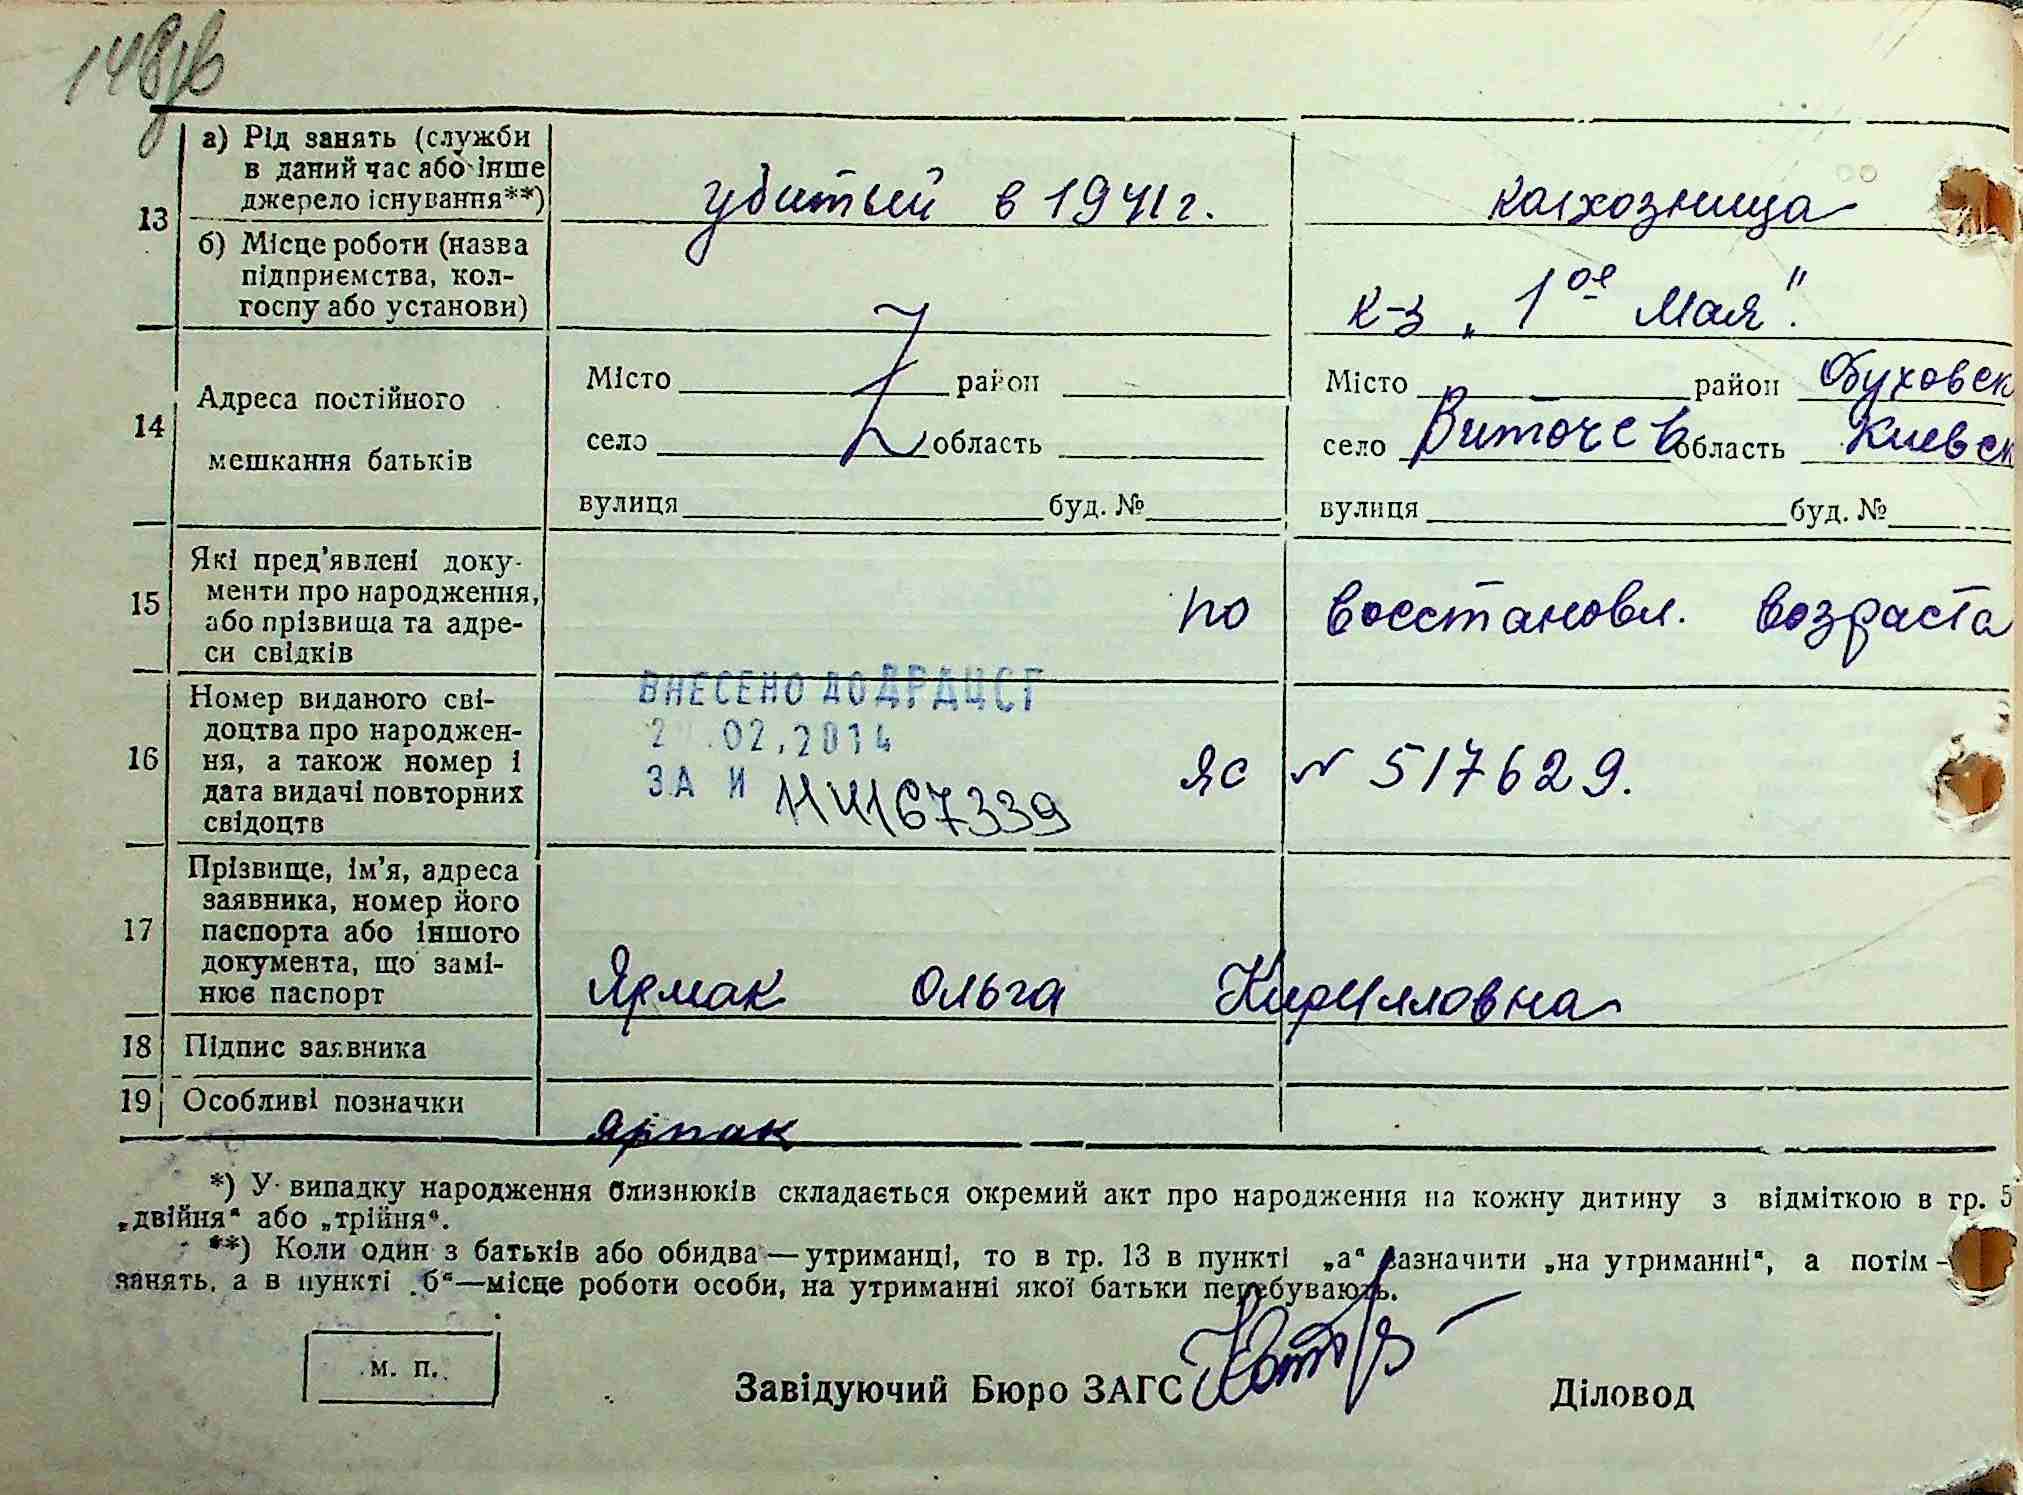 148
13
а) Рід занять (служби
в даний час або інше
джерело існування**)
убитый в 1941 г.
колхозница
б) Місце роботи (назва
підприємства, кол-
госпу або установи)
к-з „1ое Мая".
14
Адреса постійного
мешкання батьків
Місто район
село область
вулиця буд. №
Місто район Обуховск
село Виточев область Киевск
вулиця буд. №
15
Які пред'явлені доку-
менти про народження,
або прізвища та адре-
си свідків
по восстановл. возраста
16
Номер виданого сві-
доцтва про народжен-
ня, а також номер і
дата видачі повторних
свідоцтв
ВНЕСЕНО ДО ДРАЦСГ
2 .02.2014
ЗА И 11467339
ЯС № 517629.
17
Прізвище, ім'я, адреса
заявника, номер його
паспорта або іншого
документа, що замі-
нює паспорт
Ярмак Ольга Кирилловна
18 Підпис заявника
19 Особливі позначки
*) У випадку народження близнюків складається окремий акт про народження на кожну дитину з відміткою в гр. 5
„двійня" або „трійня".
**) Коли один з батьків або обидва — утриманці, то в гр. 13 в пункті „а" зазначити „на утриманні", а потім —
занять, а в пункті „б"—місце роботи особи, на утриманні якої батьки перебувають.
м. п.
Завідуючий Бюро ЗАГС
Діловод